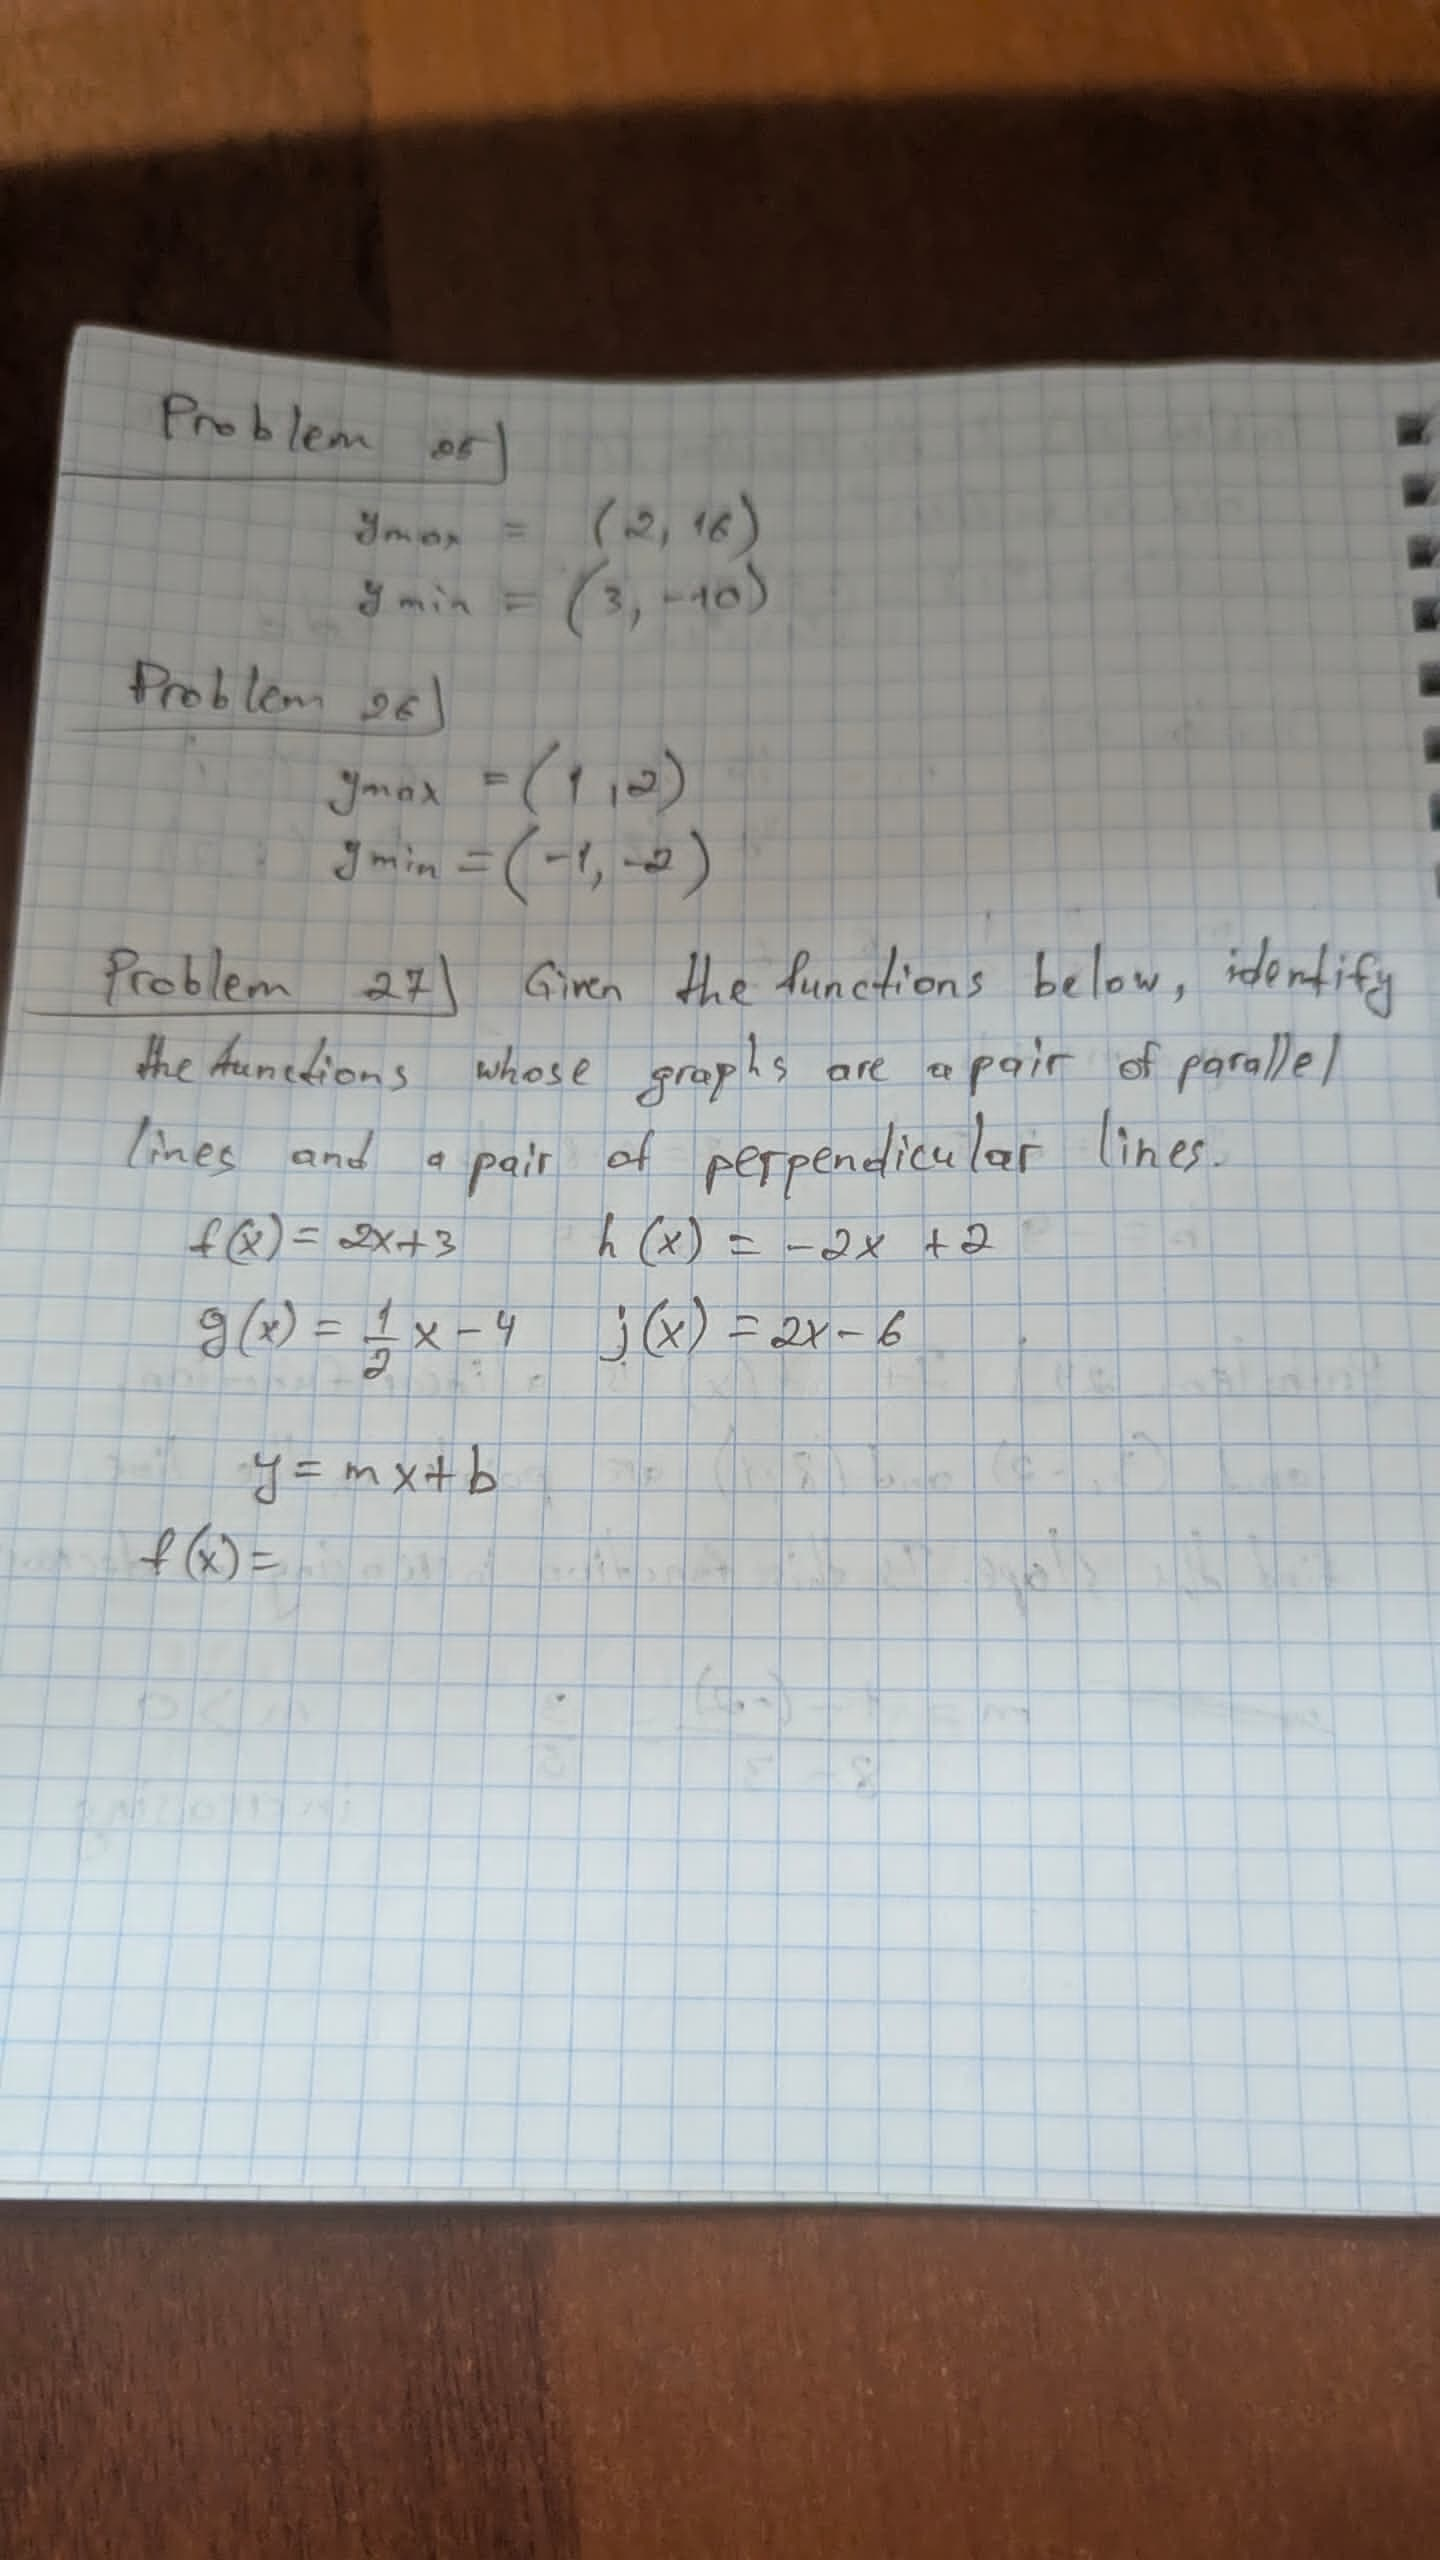 Problem 25)
ymax = (2, 16)
ymin = (3, -10)
Problem 26)
ymax = (1, 2)
ymin = (-1, -2)
Problem 27) Given the functions below, identify
the functions whose graphs are a pair of parallel
lines and a pair of perpendicular lines.
f(x) = 2x+3 h(x) = -2x +2
g(x) = 1/2 x - 4 j(x) = 2x - 6
y = mx+b
f(x) =